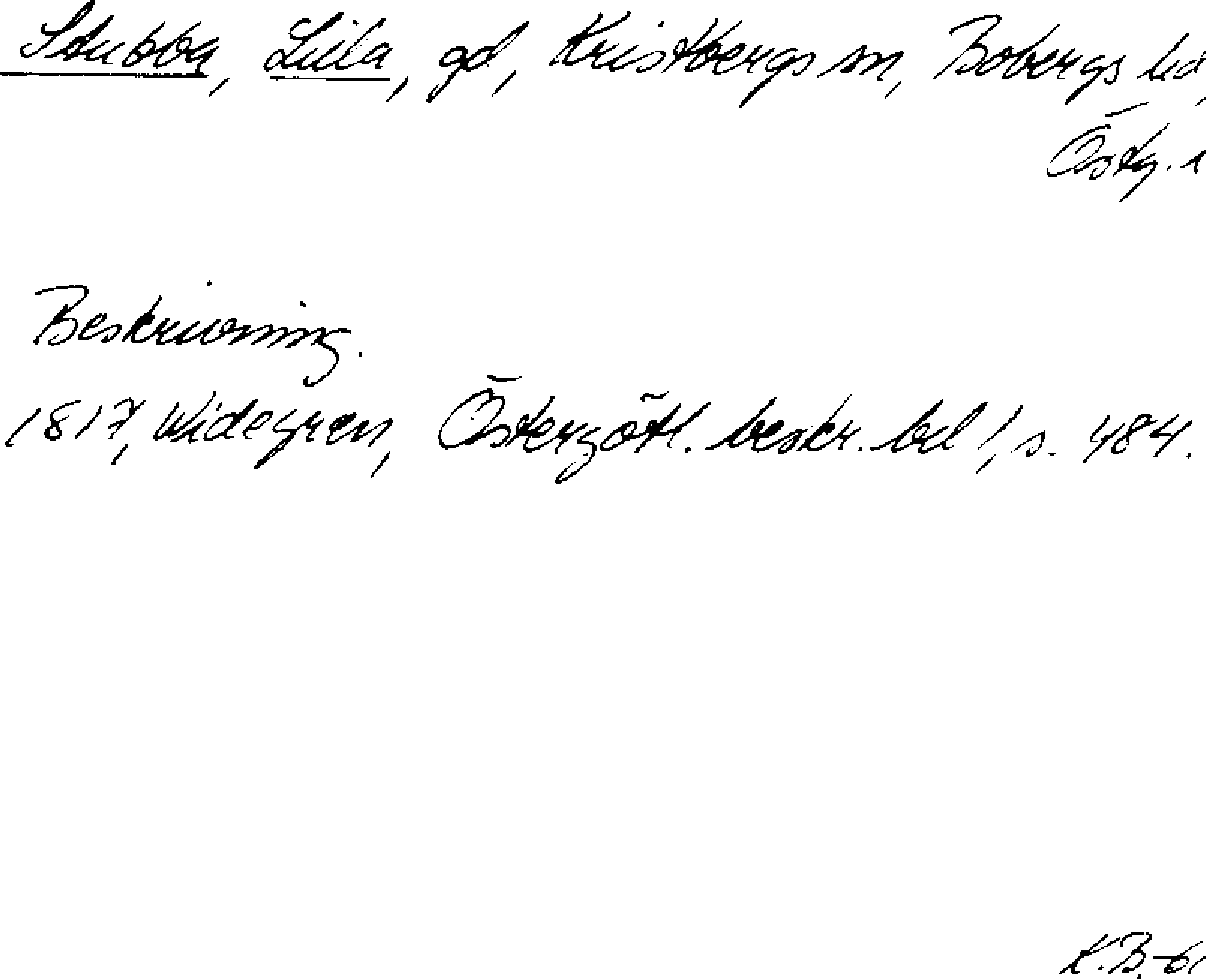 Stubba, Lilla, gd, Kristbergs sn, Bobergs hd,
Östg.
Beskrivning.
1817, Widegren, Östergötl. beskr. bd 1, s. 484.
K.B.-6